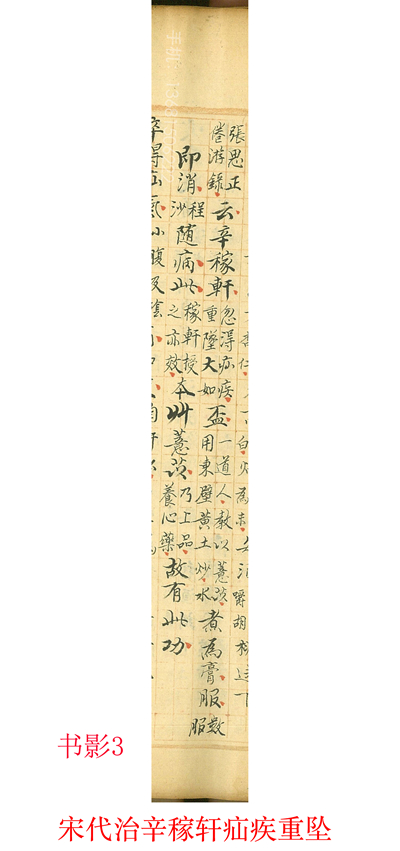 張思正倦游錄云辛稼軒忽得疝疾重墜大如盃一道人教以薏苡用東壁黃土炒水煮為膏服數服
即消程沙随病此稼軒授之亦效本艸薏苡乃上品養心藥故有此功
卒得疝氣小腹及陰
书影3
宋代治辛稼轩疝疾重坠